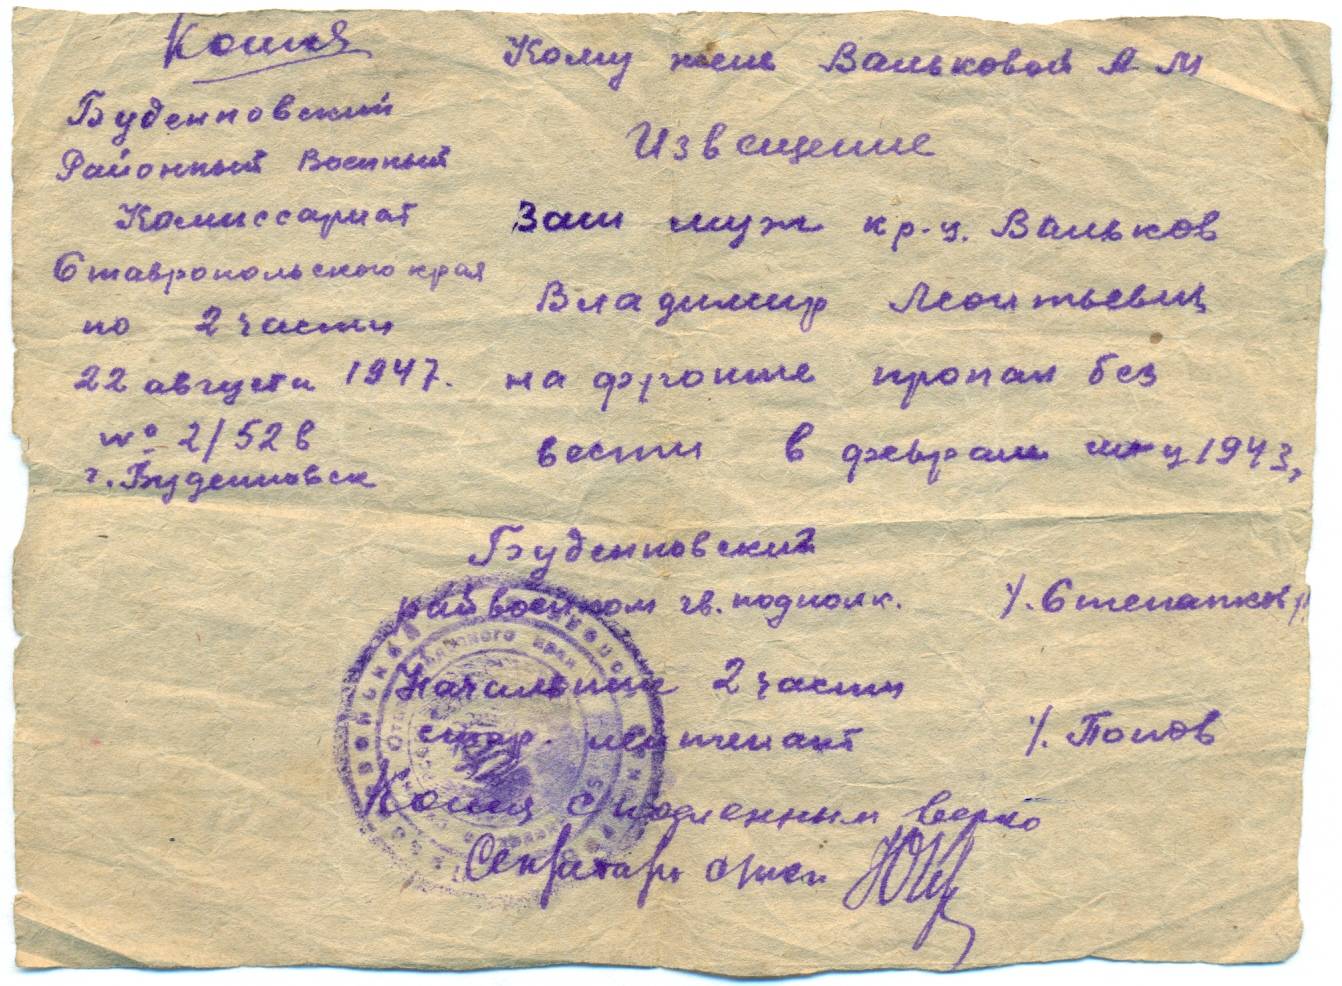 Копия
Буденновский
Районный Военный
Комиссариат
Ставропольского края
по 2 части
22 августа 1947.
№ 2/52в
г. Буденновск
Кому жене Вальковой А М
Извещение
Ваш муж кр-ц. Вальков
Владимир Леонтьевич
на фронте пропал без
вести в феврале м-ц 1943,
Буденновский
райвоенком гв. подполк. /. Степанков /.
Начальник 2 части
стар. лейтенант /. Попов
Копия с подленным верно
Секретарь